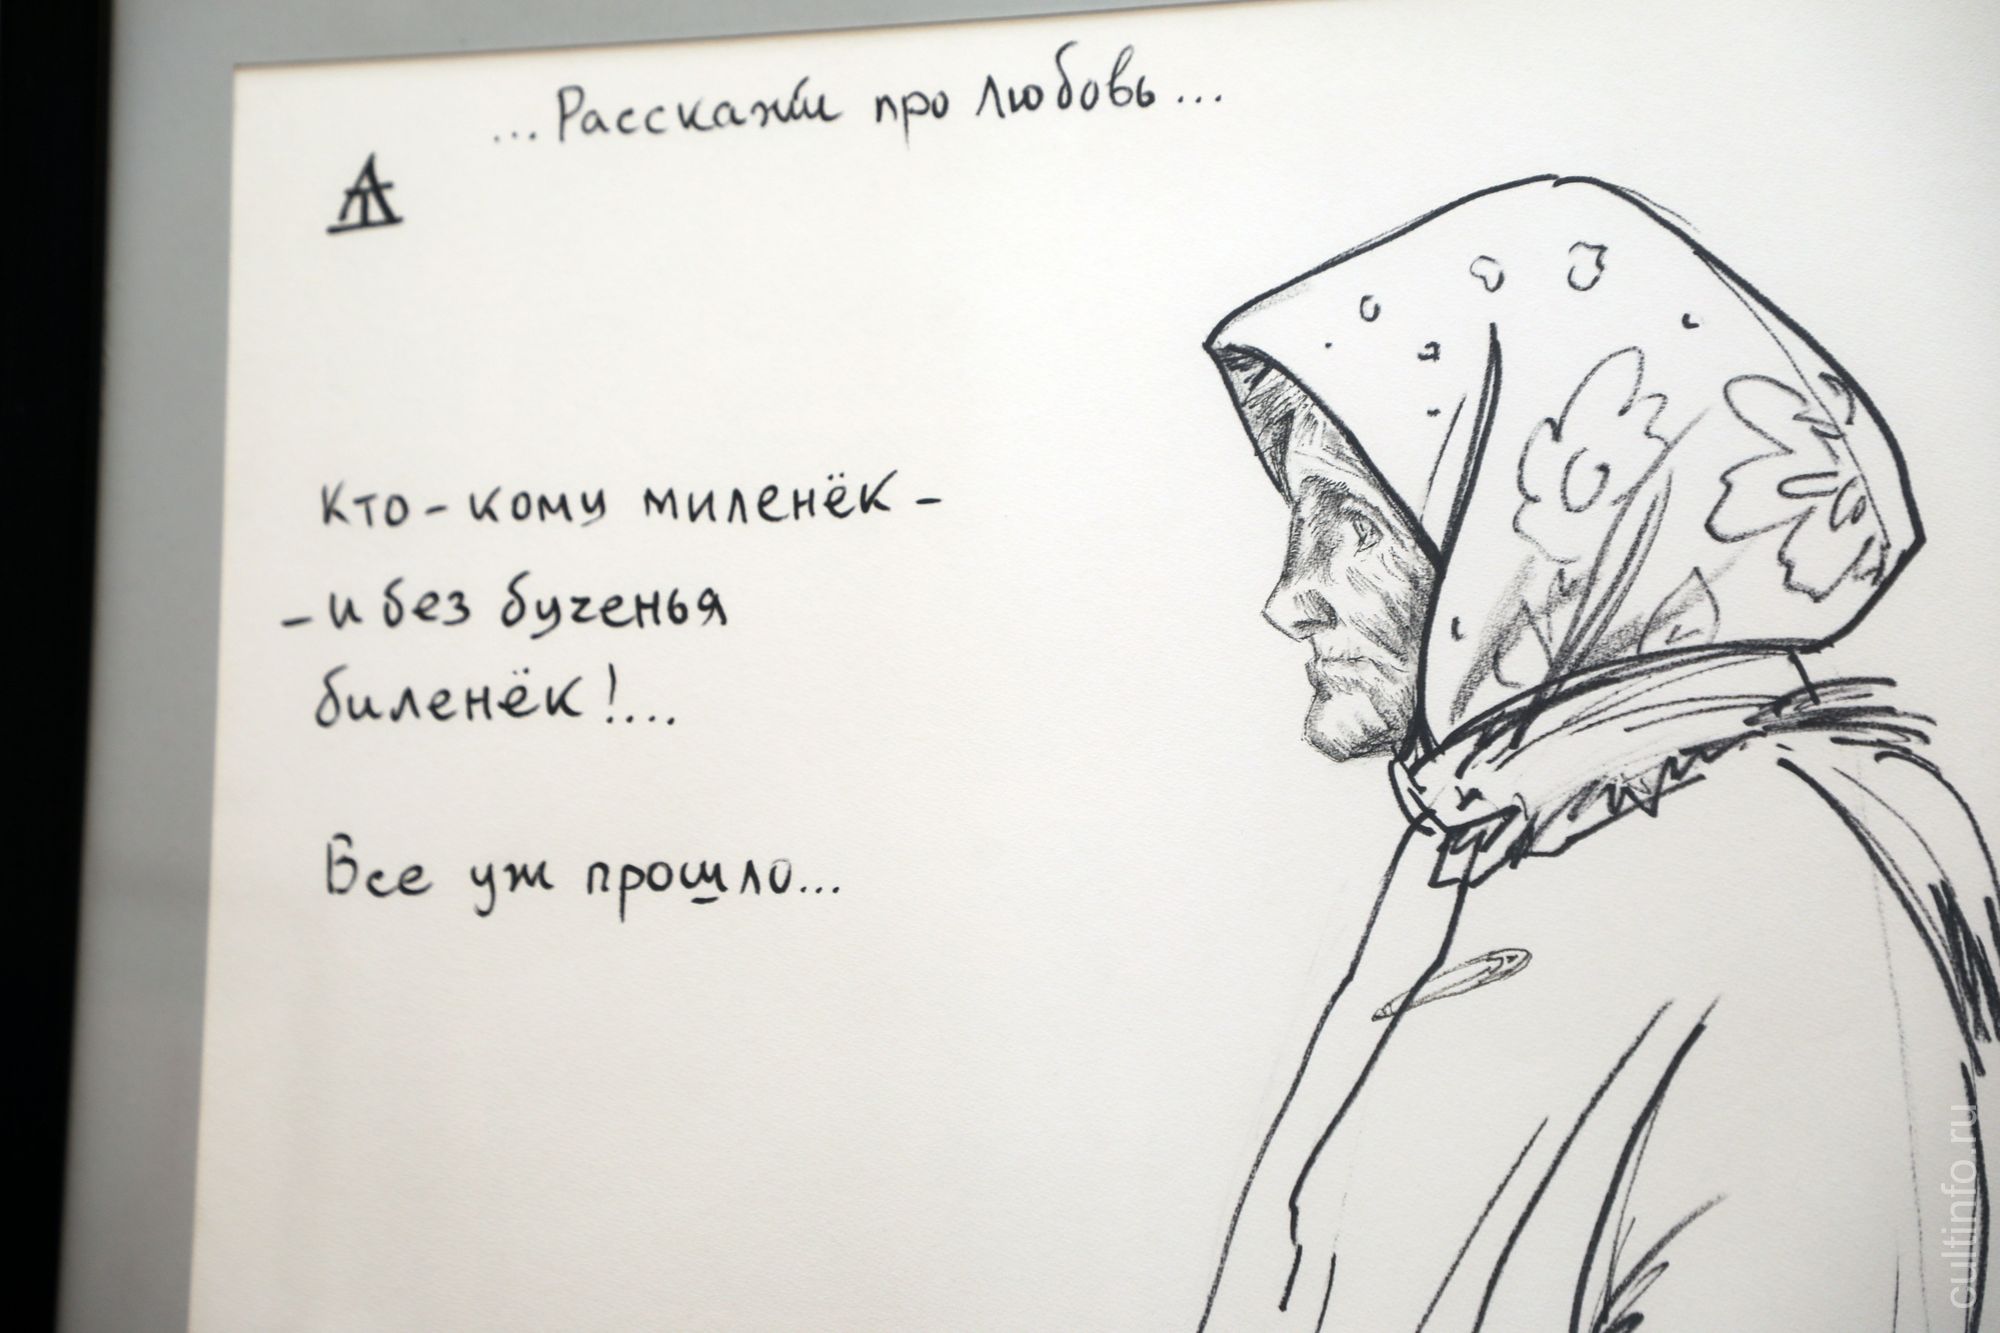 ...Расскажи про любовь...
АТ
Кто-кому миленёк -
- и без бученья
биленёк!...
Все уж прошло...
cultinfo.ru